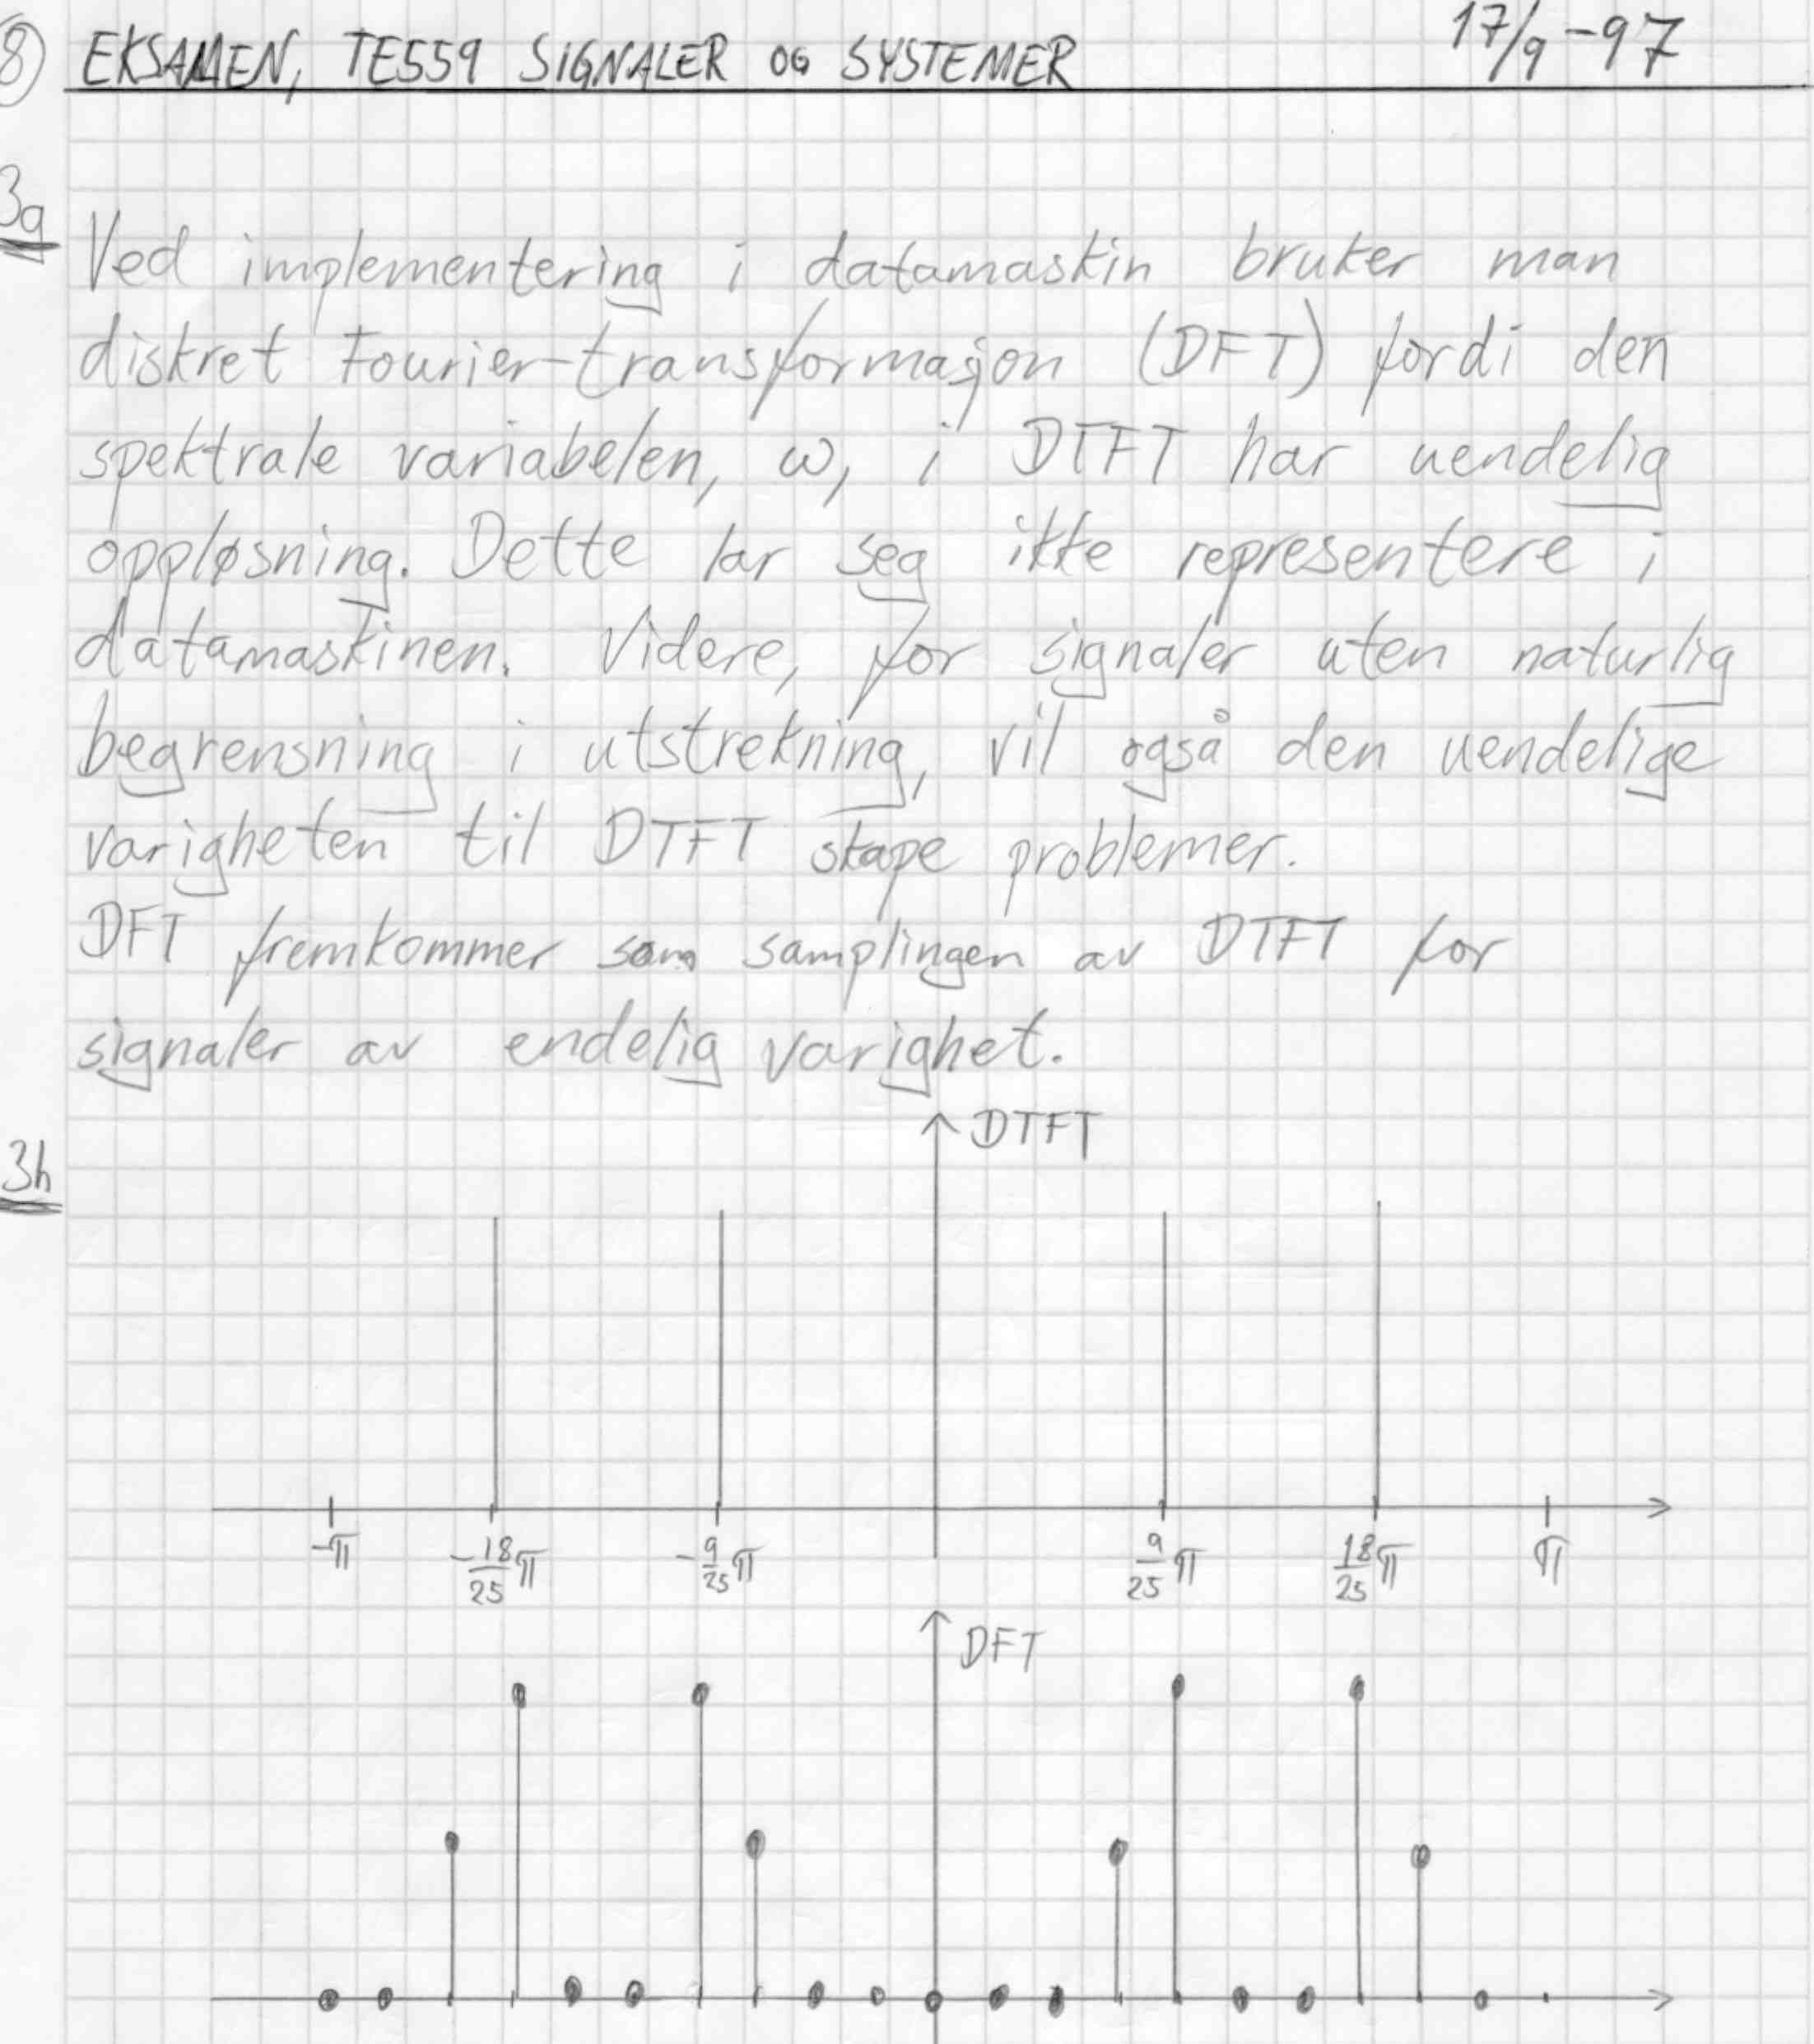 8) EKSAMEN, TE559 SIGNALER OG SYSTEMER 17/9-97
3g Ved implementering i datamaskin bruker man
diskret Fourier-transformasjon (DFT) fordi den
spektrale variabelen, ω, i DTFT har uendelig
oppløsning. Dette lar seg ikke representere i
datamaskinen. Videre, for signaler uten naturlig
begrensning i utstrekning, vil også den uendelige
varigheten til DTFT skape problemer.
DFT fremkommer som samplingen av DTFT for
signaler av endelig varighet.
3h
DTFT
-π -18/25 π -9/25 π 9/25 π 18/25 π π
DFT